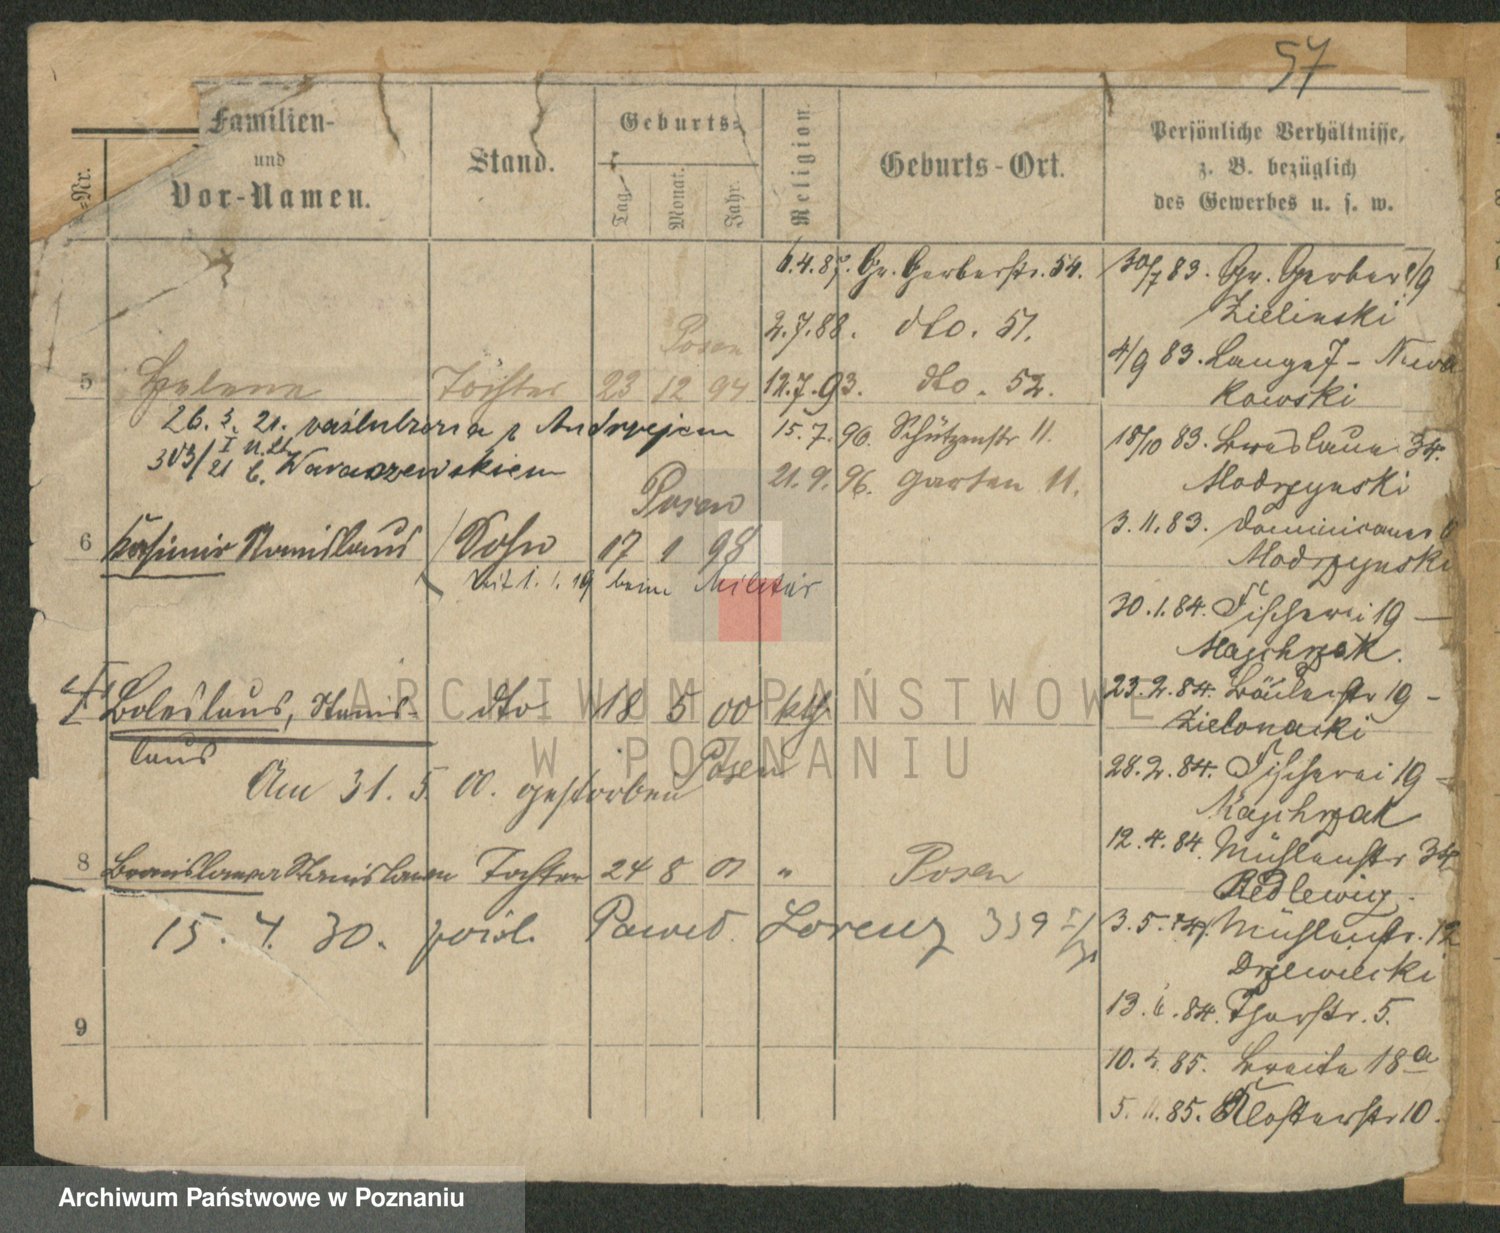 57
Familien-
und
Vor-Namen.
Stand.
Geburts-
Tag.
Monat.
Jahr.
Religion.
Geburts-Ort.
Persönliche Verhältnisse,
z. B. bezüglich
des Gewerbes u. s. w.
-Nr.
6.4.87. Gr. Gerberstr. 54.
2.7.88. dto. 51.
Posen
5 Helene Tochter 23 12 94 12.7.93. dto. 52.
26. 3. 21. zaślubiona z Andrzejem
Waraczewskiem
15.7.96. Schützenstr 11.
21.9.96. Garten 11.
Posen
6 Kasimir Stanislaus Sohn 17 1 98
seit 1. 1. 19 beim Militär
7 Boleslaus, Stanis-
laus
dto 18 5 00 kth
Posen
Am 31. 5. 00. gestorben
8 Bronislawa Stanislawa Tochter 24 8 01 " Posen
15. 4. 30. pośl. Paweł Lorenz 339
9
30/7 83. Gr. Gerber 8/9
Zielinski
4/9 83. Lange 7 - Nowa
kowski
18/10 83. Breslauer 34.
Modrzynski
3.11.83. Dominicaner 6
Modrzynski
30.1.84. Fischerei 19 —
Majchrzak.
23.2.84. Bäckerstr 19 -
Zielonacki
28.2.84. Fischerei 19 -
Majchrzak
12.4.84. Mühlenstr 34
Redlewicz.
3.5.84. Mühlenstr. 12
Drzewiecki
13.6.84. Thorstr. 5.
10.4.85. Breite 18a
5.11.85. Klosterstr 10.
ARCHIWUM PAŃSTWOWE
W POZNANIU
Archiwum Państwowe w Poznaniu